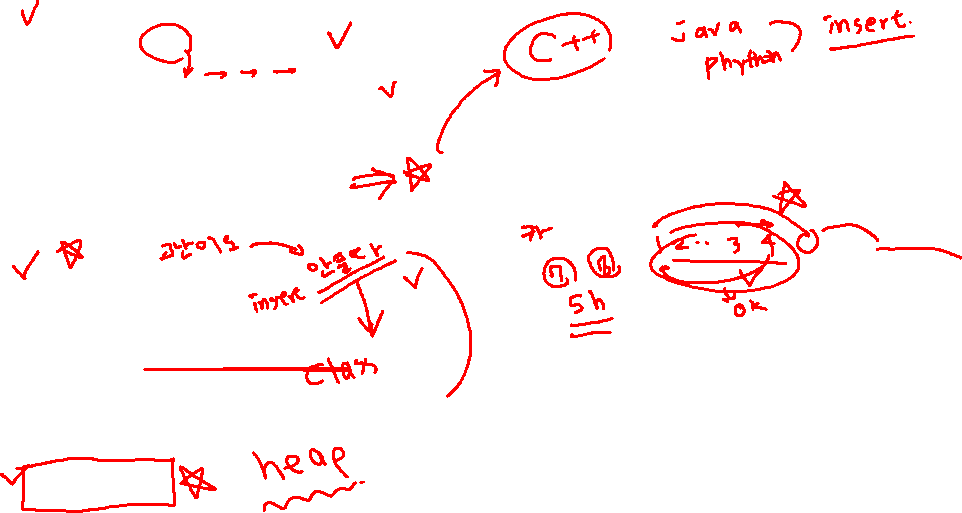 C++
java
phython
insert.
난이도
안물어봐
insert
class
5h
1 2 .. 3 4
ok
heap